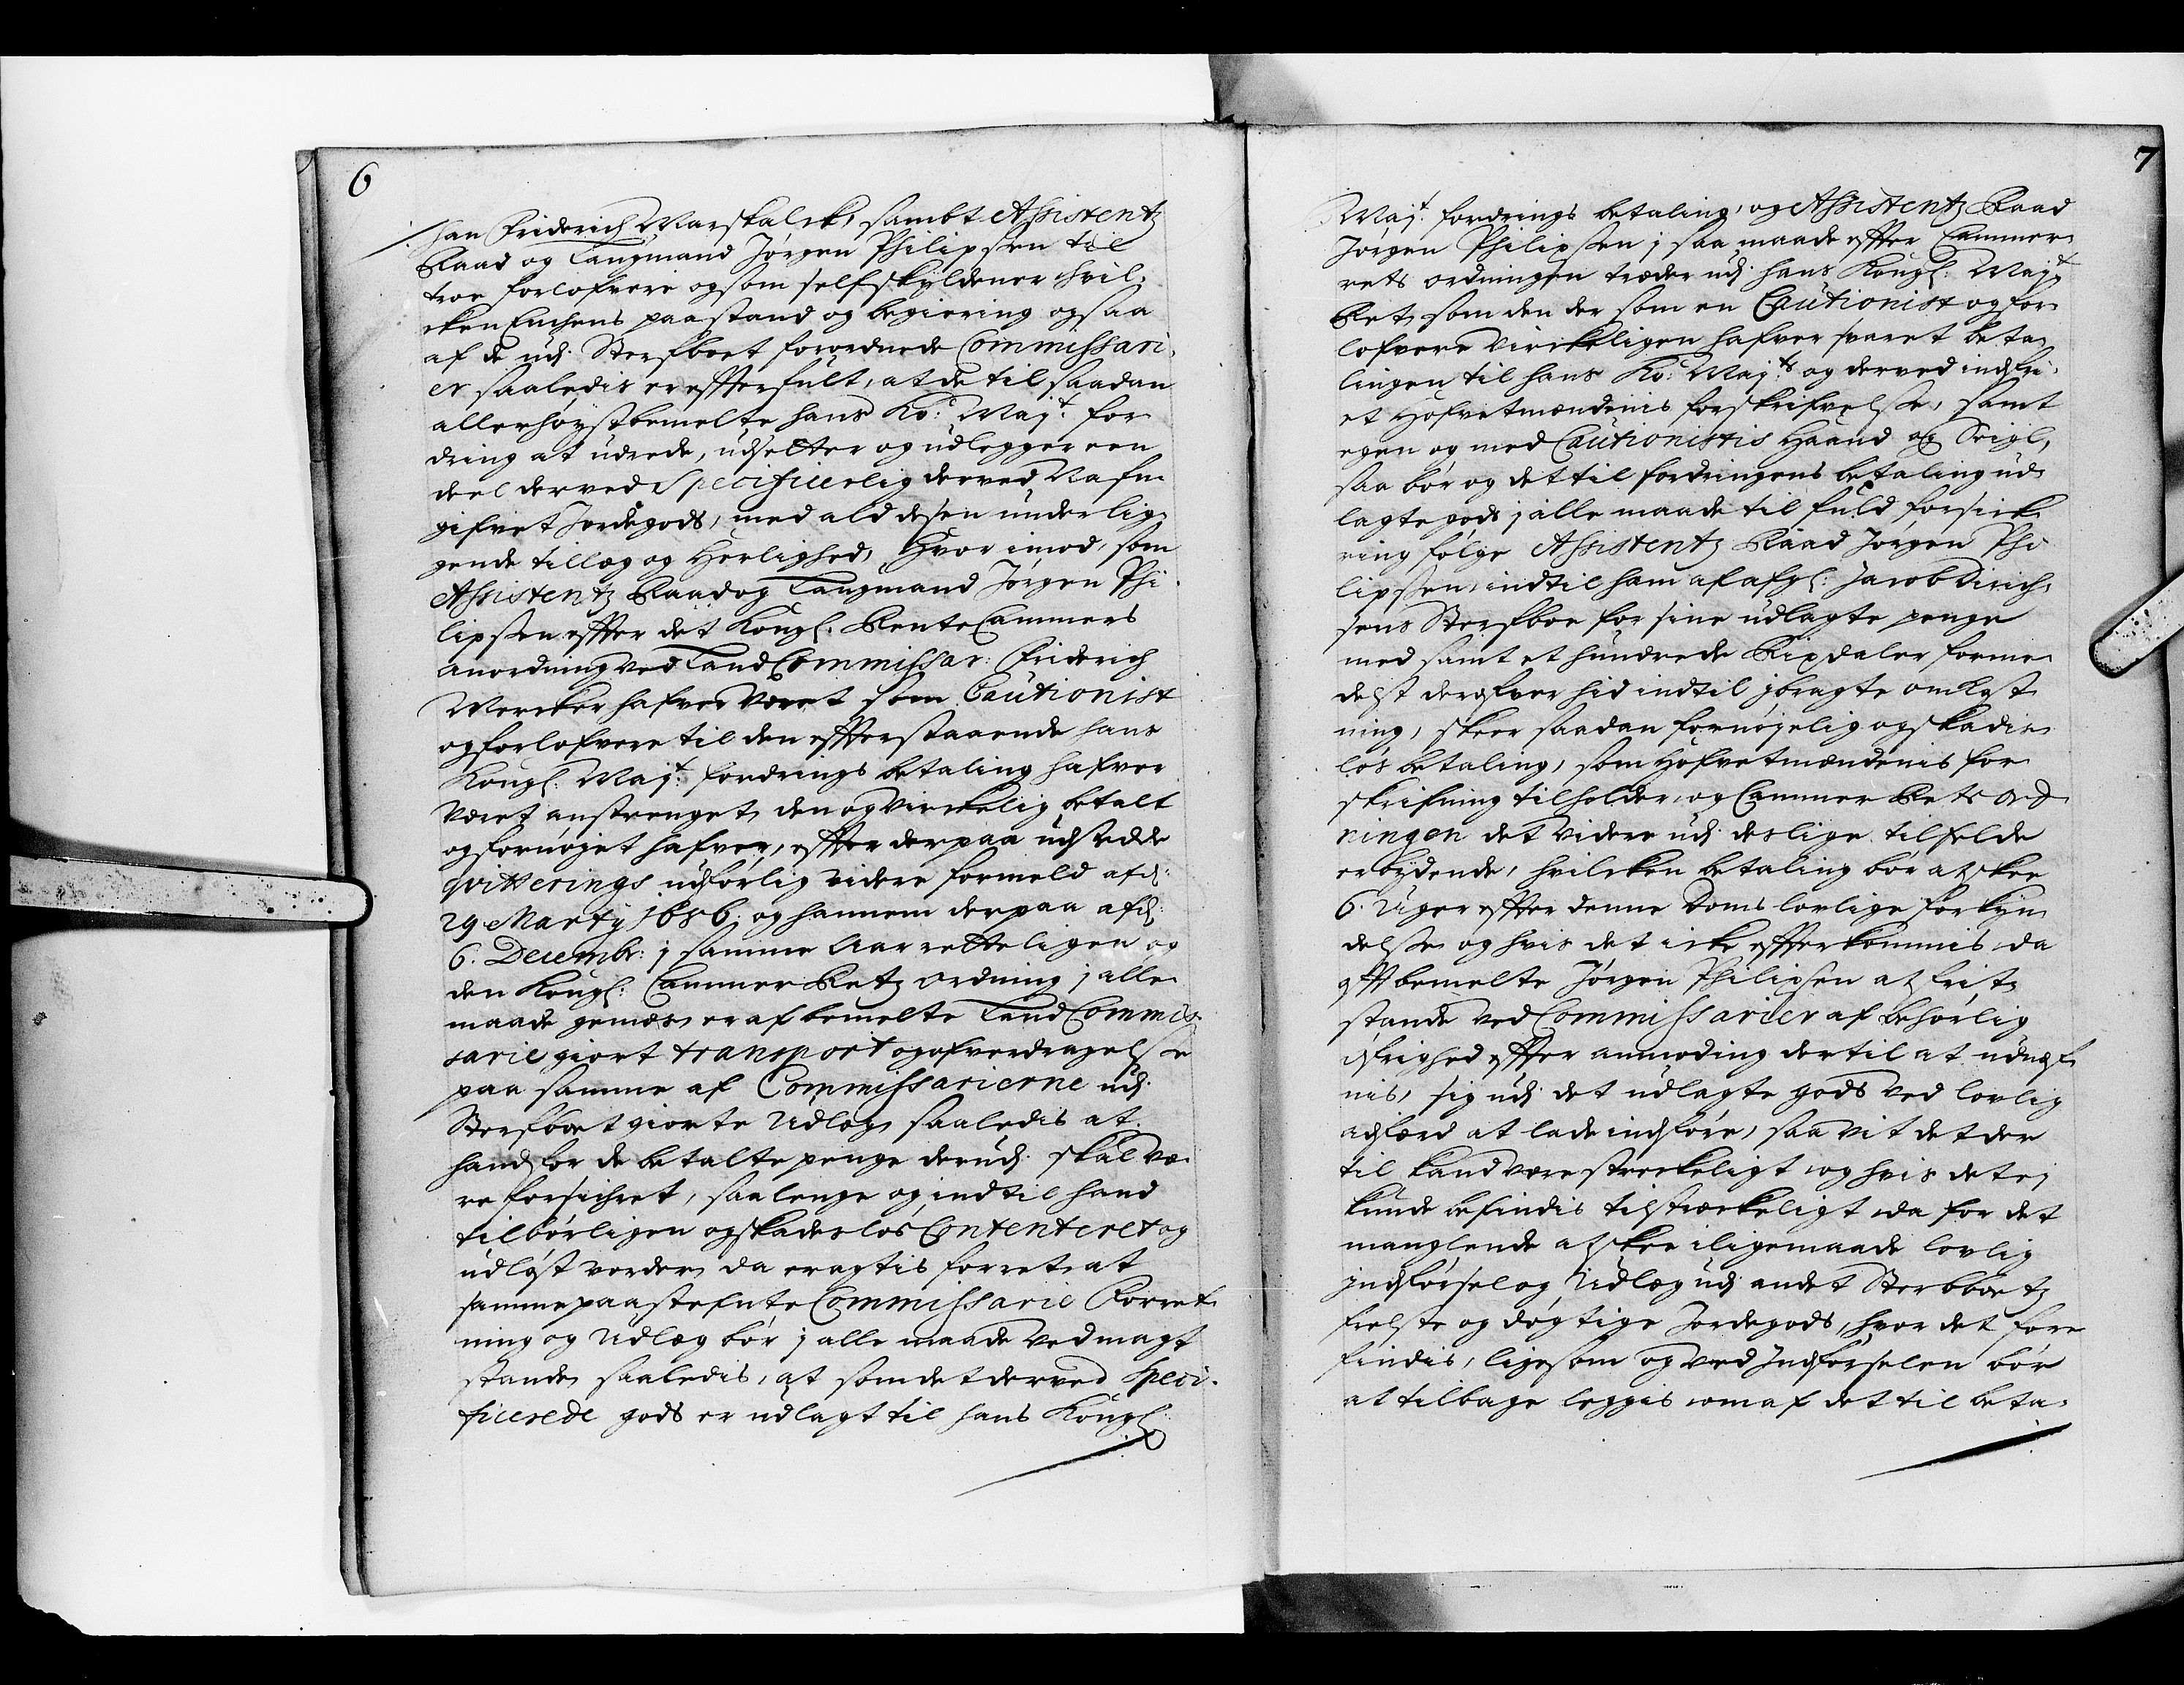 6
han Friderich Marskalck, sambt Assistentz
Raad og Laugmand Jørgen Philipsen til
troe forlofvere og som selfskyldener hvil,
cken Enchens paastand og begiering ogsaa
af de udj Sterfboet forordnede Commissari,
er saaledis er effterfult, at de til saadan
allerhøystbemelte hans Ko: May:t for
dring at udrede, udsetter og udlegger een
deel derved Specificerlig derved Nafn
gifvet Jordegods, med ald desen underlig,
gende tillæg og Herlighed, Hvor imod, som
Assistentz Raad og Laugmand Jørgen Phi
lipsen effter det Kongl: Rente Cammers
anordning ved Land Commissar: Friderich
Mercker hafver været som Cautionist
og forlofvere til den effterstaaende hans
Kongl: May:t fordrings betaling hafver
været anstrenget, den og virckelig betalt
og fornøyet hafver, effter derpaa udstedde
qvitterings udførlig videre formeld af d:
29 Martij 1686. og hannem derpaa af d:
6. Decembr: j samme Aar retteligen og
den Kongl: Cammer Retz ordning j alle
maade gemæs, er af bemelte Land Commis
sarie giort transport og ofverdragelse
paa samme af Commissarierne udj
Sterfboet giorte Udlæg, saaledis at
hand for de betalte penge derudj skal væ
re forsichret, saalenge og indtil hand
tilbørligen og skadesløs Contenteret og
udløst vorder, da eragtis forret, at
samme paastefnte Commissarie Forret
ning og Udlæg bør j alle maade ved magt
stande, saaledis, at som det derved Speci
ficerede gods er udlagt til hans Kongl:
7
May:t fordrings betaling, og Assistentz Raad
Jørgen Philipsen j saa maade effter Cammer
rets ordningen træder udj hans Kongl: May:ts
Ret, som den der som en Cautionist og for
lofvere virckeligen hafver svaret beta
lingen til hans Ko: May:ts og derved indfri
et Hofvetmændenis forskrifvelse, samt
egen og med Cautionistis Haand og Seigl,
saa bør og det til fordringens betaling ud
lagte gods j alle maade til fuld forsick
ring følge Assistentz Raad Jørgen Phi
lipsen, indtil ham af afgl: Jacob Dirich
sens Sterfboe for sine udlagte penge
med samt et hundrede Rixdaler forme
delst derofver hid indtil jbragte omkost
ning, skeer saadan fornøyelig og skadis
løs betaling, som Hofvetmændenis for
skrifning tilholder, og Cammer Rets Ord
ningen det videre udj deslige tilfelde
erbydende, hvilcken betaling bør at skee
6. Uger effter denne Doms lovlige forkyn
delse og hvis det icke effterkommis, da
offtbemelte Jørgen Philipsen at frit
stande ved Commissarier af behørlig
øfrighed effter anmoding dertil at udnef
nis, sig udj det udlagte gods ved lovlig
adfærd at lade indføre, saa vit det der
til kand være streckeligt, og hvis det ej
kunde befindis tilstreckeligt, da for det
manglende at skee iligemaade lovlig
jndførsel og Udlæg udj andet Sterbboetz
frelste og døgtige Jordegods, hvor det fore
findis, lige som og ved Jndførselen bør
at tilbage leggis, om af det til beta